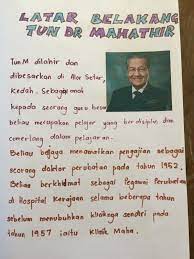 LATAR BELAKANG
TUN DR MAHATHIR
Tun M dilahir dan
dibesarkan di Alor Setar,
Kedah. Sebagai anak
kepada seorang guru besar
beliau merupakan pelajar yang berdisiplin dan
cemerlang dalam pelajaran.
Beliau berjaya menamatkan pengajian sebagai
seorang doktor perubatan pada tahun 1952.
Beliau berkhidmat sebagai Pegawai Perubatan
di Hospital Kerajaan selama beberapa tahun
sebelum menubuhkan kliniknya sendiri pada
tahun 1957 iaitu Klinik Maha.